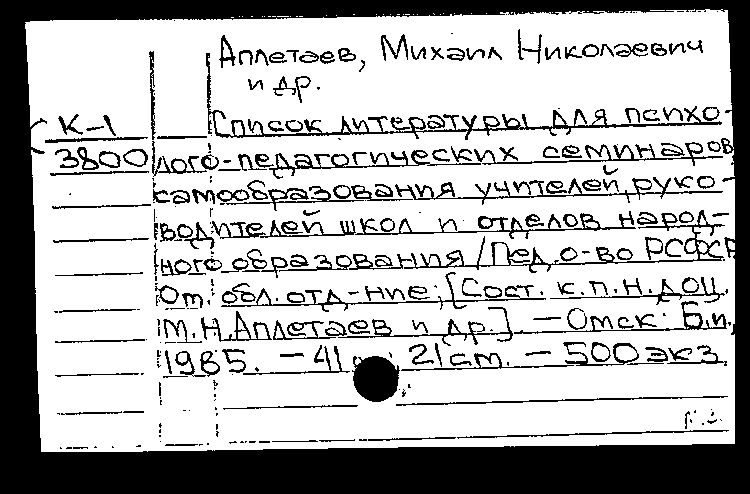 Аплетаев, Михаил Николаевич
и др.
К-1
3800
Список литературы для психо-
лого-педагогических семинаров,
самообразования учителей, руко-
водителей школ и отделов народ-
ного образования / Пед. о-во РСФСР
Ом. обл. отд-ние; [Сост. к.п.н. доц.
М.Н. Аплетаев и др.]. – Омск: Б.и.,
1985. – 41 21 см. – 500 экз.